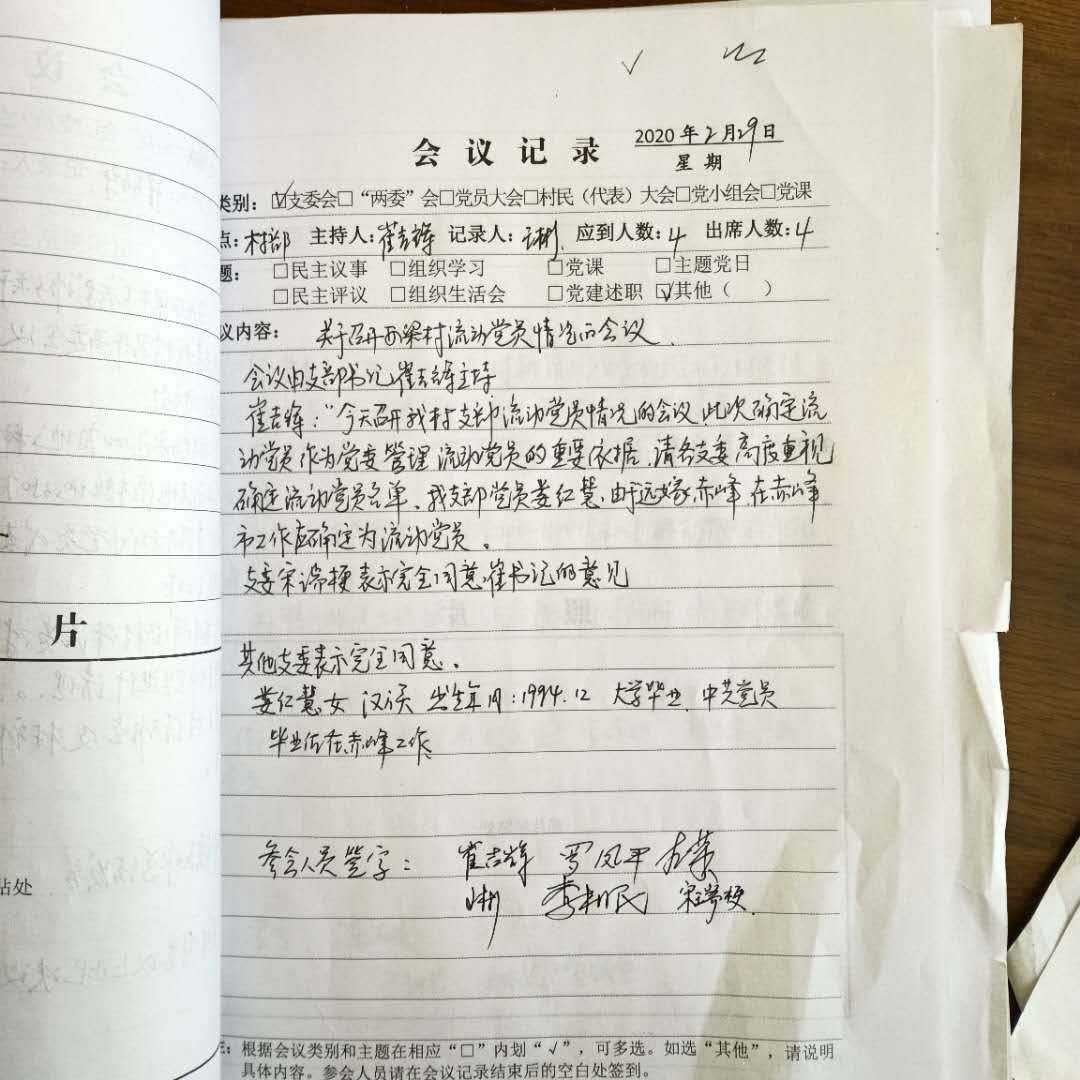 会议记录
2020年2月29日
星期
类别：☑支委会□“两委”会□党员大会□村民（代表）大会□党小组会□党课
点：村部 主持人：崔吉辉 记录人： 应到人数：4 出席人数：4
题： □民主议事 □组织学习 □党课 □主题党日
□民主评议 □组织生活会 □党建述职 ☑其他（ ）
议内容： 关于召开西梁村流动党员情况的会议.
会议由支部书记崔吉辉主持
崔吉辉：“今天召开我村支部流动党员情况的会议,此次确定流
动党员作为党委管理流动党员的重要依据,请各支委高度重视
确定流动党员名单、我支部党员姜红慧,由于远嫁赤峰,在赤峰
市工作应确定为流动党员。
支委宋瑞梗表示完全同意崔书记的意见
其他支委表示完全同意。
姜红慧 女 汉族 出生年月：1994.12 大学毕业 中共党员
毕业后在赤峰工作
参会人员签字： 崔吉辉 罗凤平
宋瑞梗
根据会议类别和主题在相应“□”内划“√”，可多选。如选“其他”，请说明
具体内容。参会人员请在会议记录结束后的空白处签到。
片
站处
会议